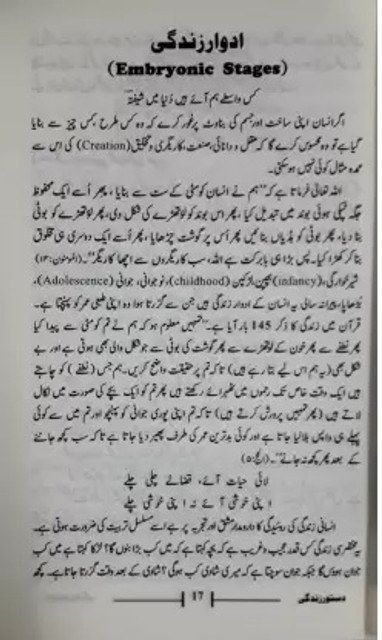 ادوار زندگی
(Embryonic Stages)
کس واسطے ہم آئے ہیں دُنیا میں شیفتہ
اگر انسان اپنی ساخت اور جسم کی بناوٹ پر غور کرے کہ وہ کس طرح، کس چیز سے بنایا
گیا ہے تو وہ محسوس کرے گا کہ عقل و دانائی، صنعت، کاریگری و تخلیق (Creation) کی اس سے
عمدہ مثال کوئی نہیں ہو سکتی۔
اللہ تعالیٰ فرماتا ہے کہ ”ہم نے انسان کو مٹی کے ست سے بنایا، پھر اُسے ایک محفوظ
جگہ ٹپکی ہوئی بوند میں تبدیل کیا، پھر اس بوند کو لوتھڑے کی شکل دی، پھر لوتھڑے کو بوٹی
بنا دیا، پھر بوٹی کو ہڈیاں بنائیں پھر اُس پر گوشت چڑھایا، پھر اُسے ایک دوسری ہی مخلوق
بنا کر کھڑا کیا۔ پس بڑا ہی بابرکت ہے اللہ، سب کاریگروں سے اچھا کاریگر“۔ (المومنون:۱۴)
شیر خوارگی، (infancy) بچپن، لڑکپن (childhood)، نوجوانی، جوانی (Adolescence)،
بڑھاپا، پیرانہ سالی یہ انسان کے ادوار زندگی ہیں جن سے گزرتا ہوا وہ اپنی طبعی عمر کو پہنچتا ہے۔
قرآن میں زندگی کا ذکر 145 بار آیا ہے۔ ”تمہیں معلوم ہو کہ ہم نے تم کو مٹی سے پیدا کیا
پھر نطفے سے پھر خون کے لوتھڑے سے پھر گوشت کی بوٹی سے جو شکل والی بھی ہوتی ہے اور بے
شکل بھی (یہ ہم اس لیے بتا رہے ہیں) تاکہ تم پر حقیقت واضح کریں۔ ہم جس (نطفے) کو چاہتے
ہیں ایک وقت خاص تک رحموں میں ٹھہرائے رکھتے ہیں پھر تم کو ایک بچے کی صورت میں نکال
لاتے ہیں (پھر تمہیں پرورش کرتے ہیں) تاکہ تم اپنی پوری جوانی کو پہنچو اور تم میں سے کوئی
پہلے ہی واپس بلا لیا جاتا ہے اور کوئی بدترین عمر کی طرف پھیر دیا جاتا ہے تاکہ سب کچھ جاننے
کے بعد پھر کچھ نہ جانے“۔ (الحج:۵)
لائی حیات آئے، قضا لے چلی چلے
اپنی خوشی آئے نہ اپنی خوشی چلے
انسانی زندگی کی روئیدگی کا دارومدار مشق اور تجربہ پر ہے اسے مسلسل تربیت کی ضرورت ہوتی ہے۔
یہ مختصر سی زندگی کس قدر عجیب و غریب ہے کہ بچہ کہتا ہے کہ میں کب بڑا ہوں گا؟ لڑکا کہتا ہے میں کب
جوان ہوں گا جبکہ جوان سوچتا ہے کہ میری شادی کب ہوگی؟ شادی کے بعد وقت گزرتا جاتا ہے۔ کچھ
دستور زندگی
17